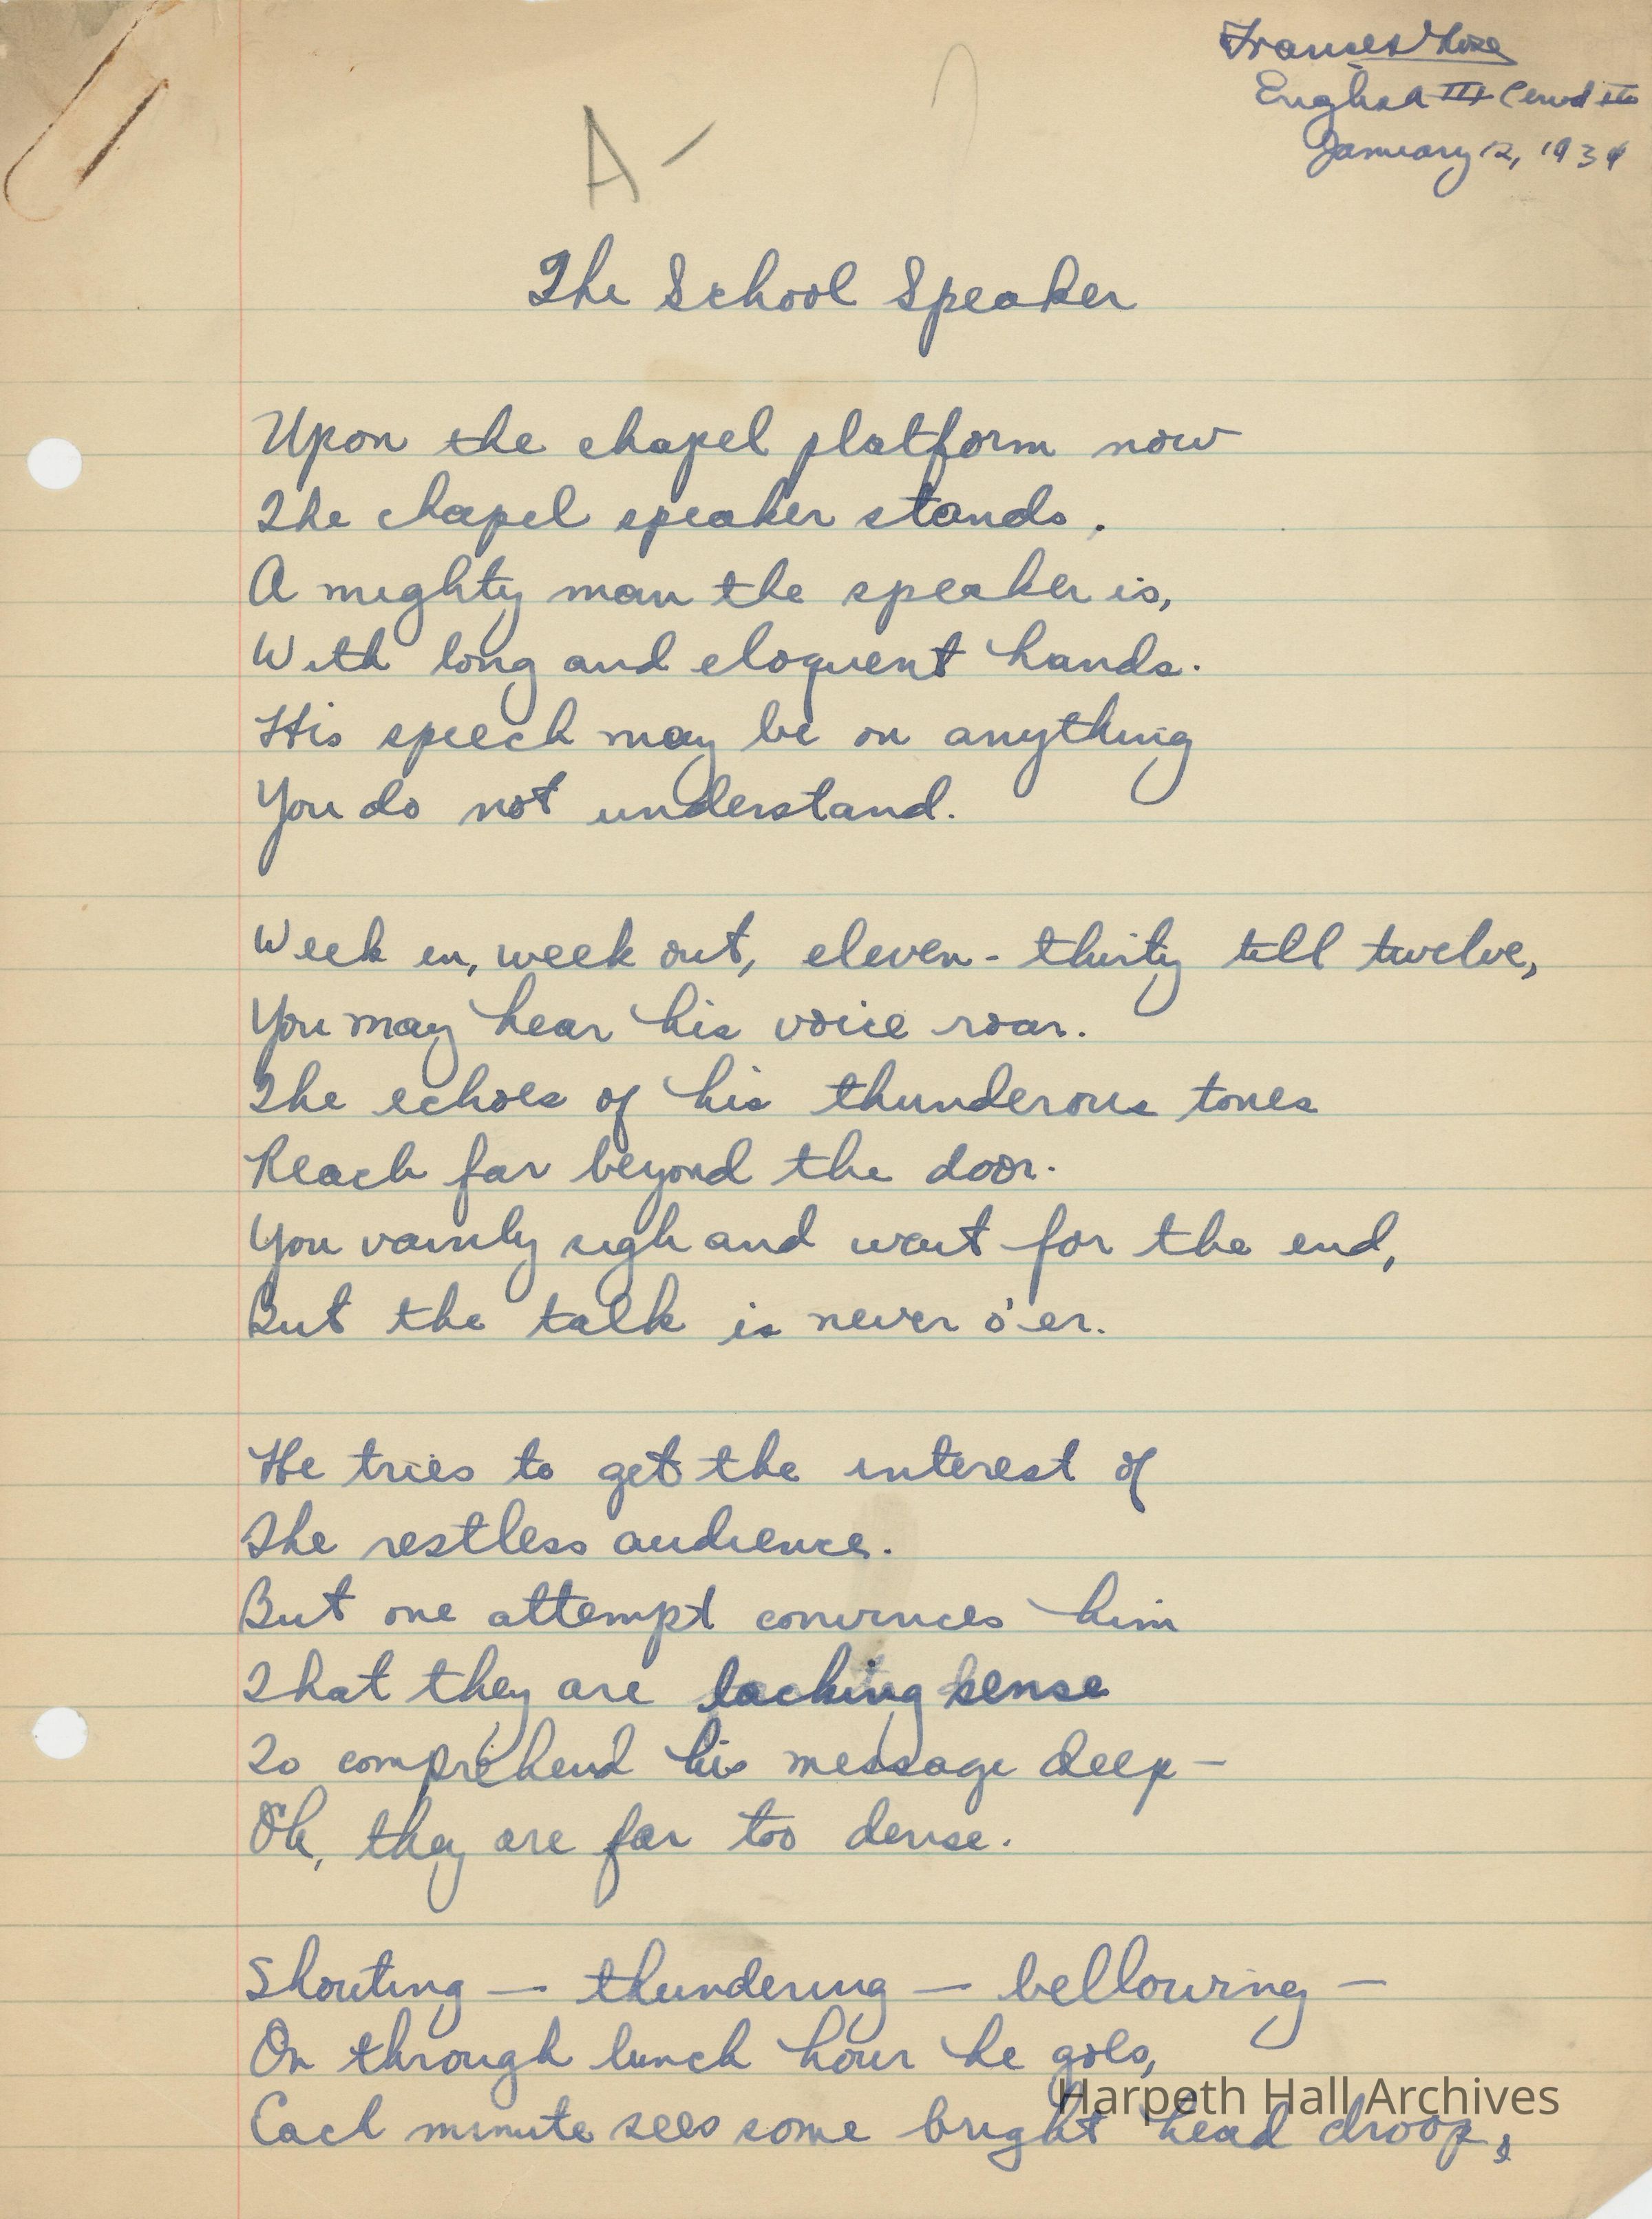 Frances
English III
January 12, 1934
A-
The School Speaker
Upon the chapel platform now
The chapel speaker stands.
A mighty man the speaker is,
With long and eloquent hands.
His speech may be on anything
You do not understand.
Week in, week out, eleven-thirty till twelve,
You may hear his voice roar.
The echoes of his thunderous tones
Reach far beyond the door.
You vainly sigh and wait for the end,
But the talk is never o'er.
He tries to get the interest of
The restless audience.
But one attempt convinces him
That they are lacking sense
To comprehend his message deep—
Oh, they are far too dense.
Shouting — thundering — bellowing —
On through lunch hour he goes,
Each minute sees some bright head droop,
Harpeth Hall Archives